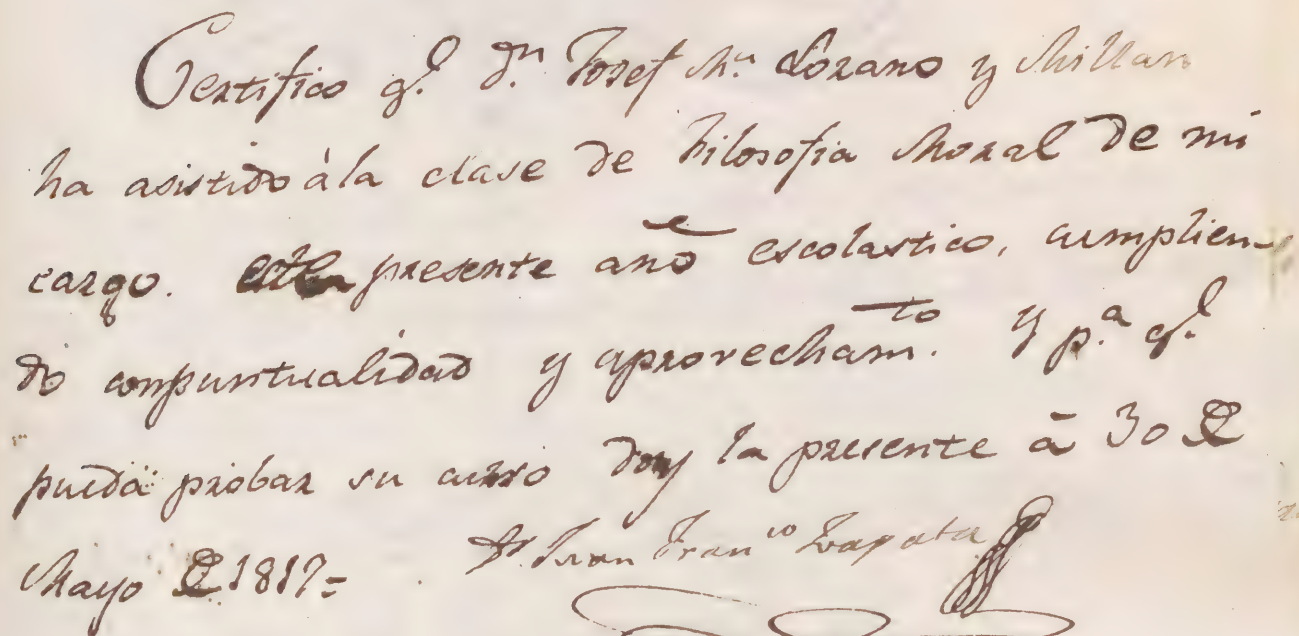 Certifico q.e D.n Josef M.a Lozano y Millan
ha asistido à la clase de Filosofia Moral de mi
cargo. este presente año escolastico, cumplien-
do con puntualidad y aprovecham.to Y p.a q.e
pueda probar su curso doy la presente à 30 de
Mayo de 1817=
D.r Juan Fran.co Zapata